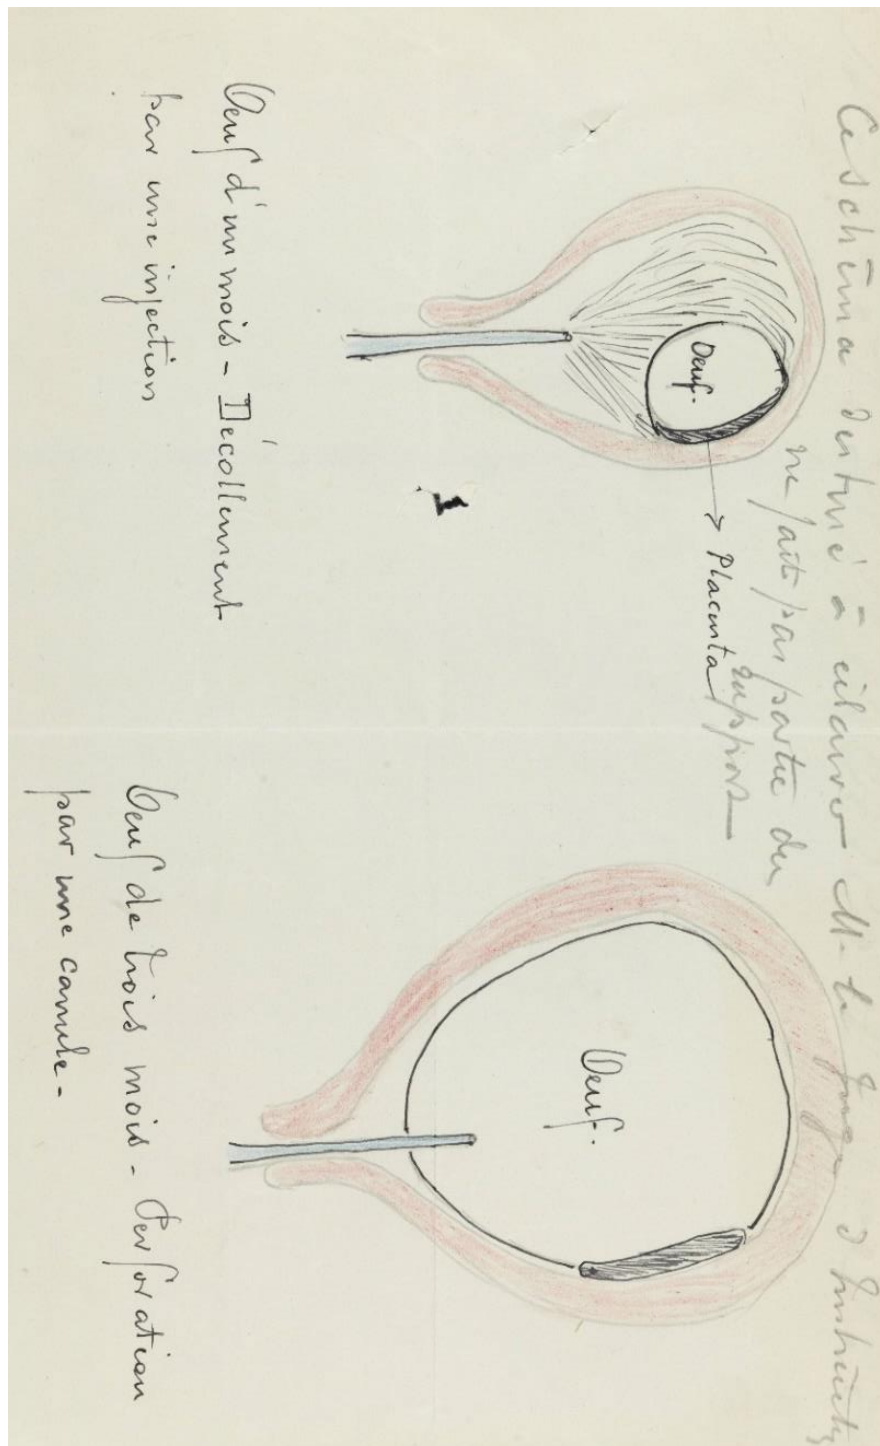 Ce schéma destiné à éclairer M. le Juge d'Instruction
ne fait pas partie du
rapport
Oeuf.
Placenta
Oeuf d'un mois - Décollement
par une injection
Oeuf.
Oeuf de trois mois - Perforation
par une canule -